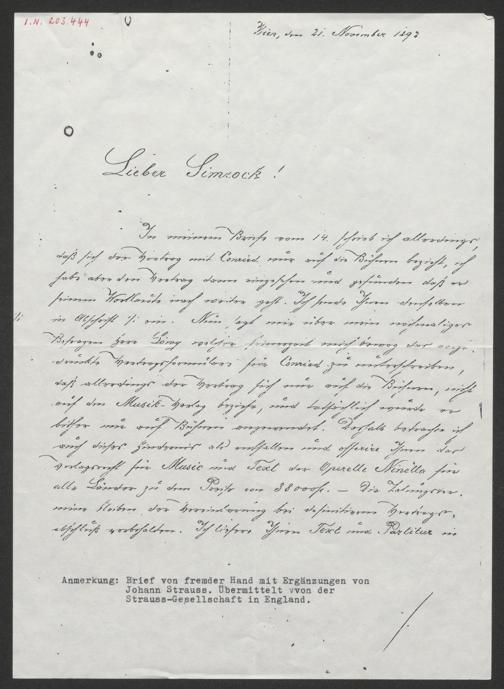 I.N. 203.444
Wien, den 21. November 1892
Lieber Simrock!
In meinem Briefe vom 14. schrieb ich allerdings,
daß sich der Vertrag mit Conried nur auf die Bühnen bezieht, ich
habe aber den Vertrag dann eingesehen und gefunden daß er
seinem Wortlaute nach weiter geht. Ich sende Ihnen denselben
in Abschrift ein. Nun sagt mir über mein nochmaliges
Befragen Herr Lewy welcher seinerzeit mich bewog das
Vertragsformulare für Conried zu unterschreiben,
daß allerdings der Vertrag sich nur auf die Bühnen, nicht
auf den Musik-Verlag beziehe, und thatsächlich wurde er
bisher nur auf Bühnen angewendet. Deshalb betrachte ich
auch dieses Hindernis als entfallen und offerire Ihnen das
Verlagsrecht für Music und Text der Operette Ninetta für
alle Länder zu dem Preise von 38000 –. Die
bleiben der Vereinbarung bei definitivem Vertrags-
abschluß vorbehalten. Ich liefere Ihnen Text und Partitur in
Anmerkung: Brief von fremder Hand mit Ergänzungen von
Johann Strauss. Übermittelt vvon der
Strauss-Gesellschaft in England.